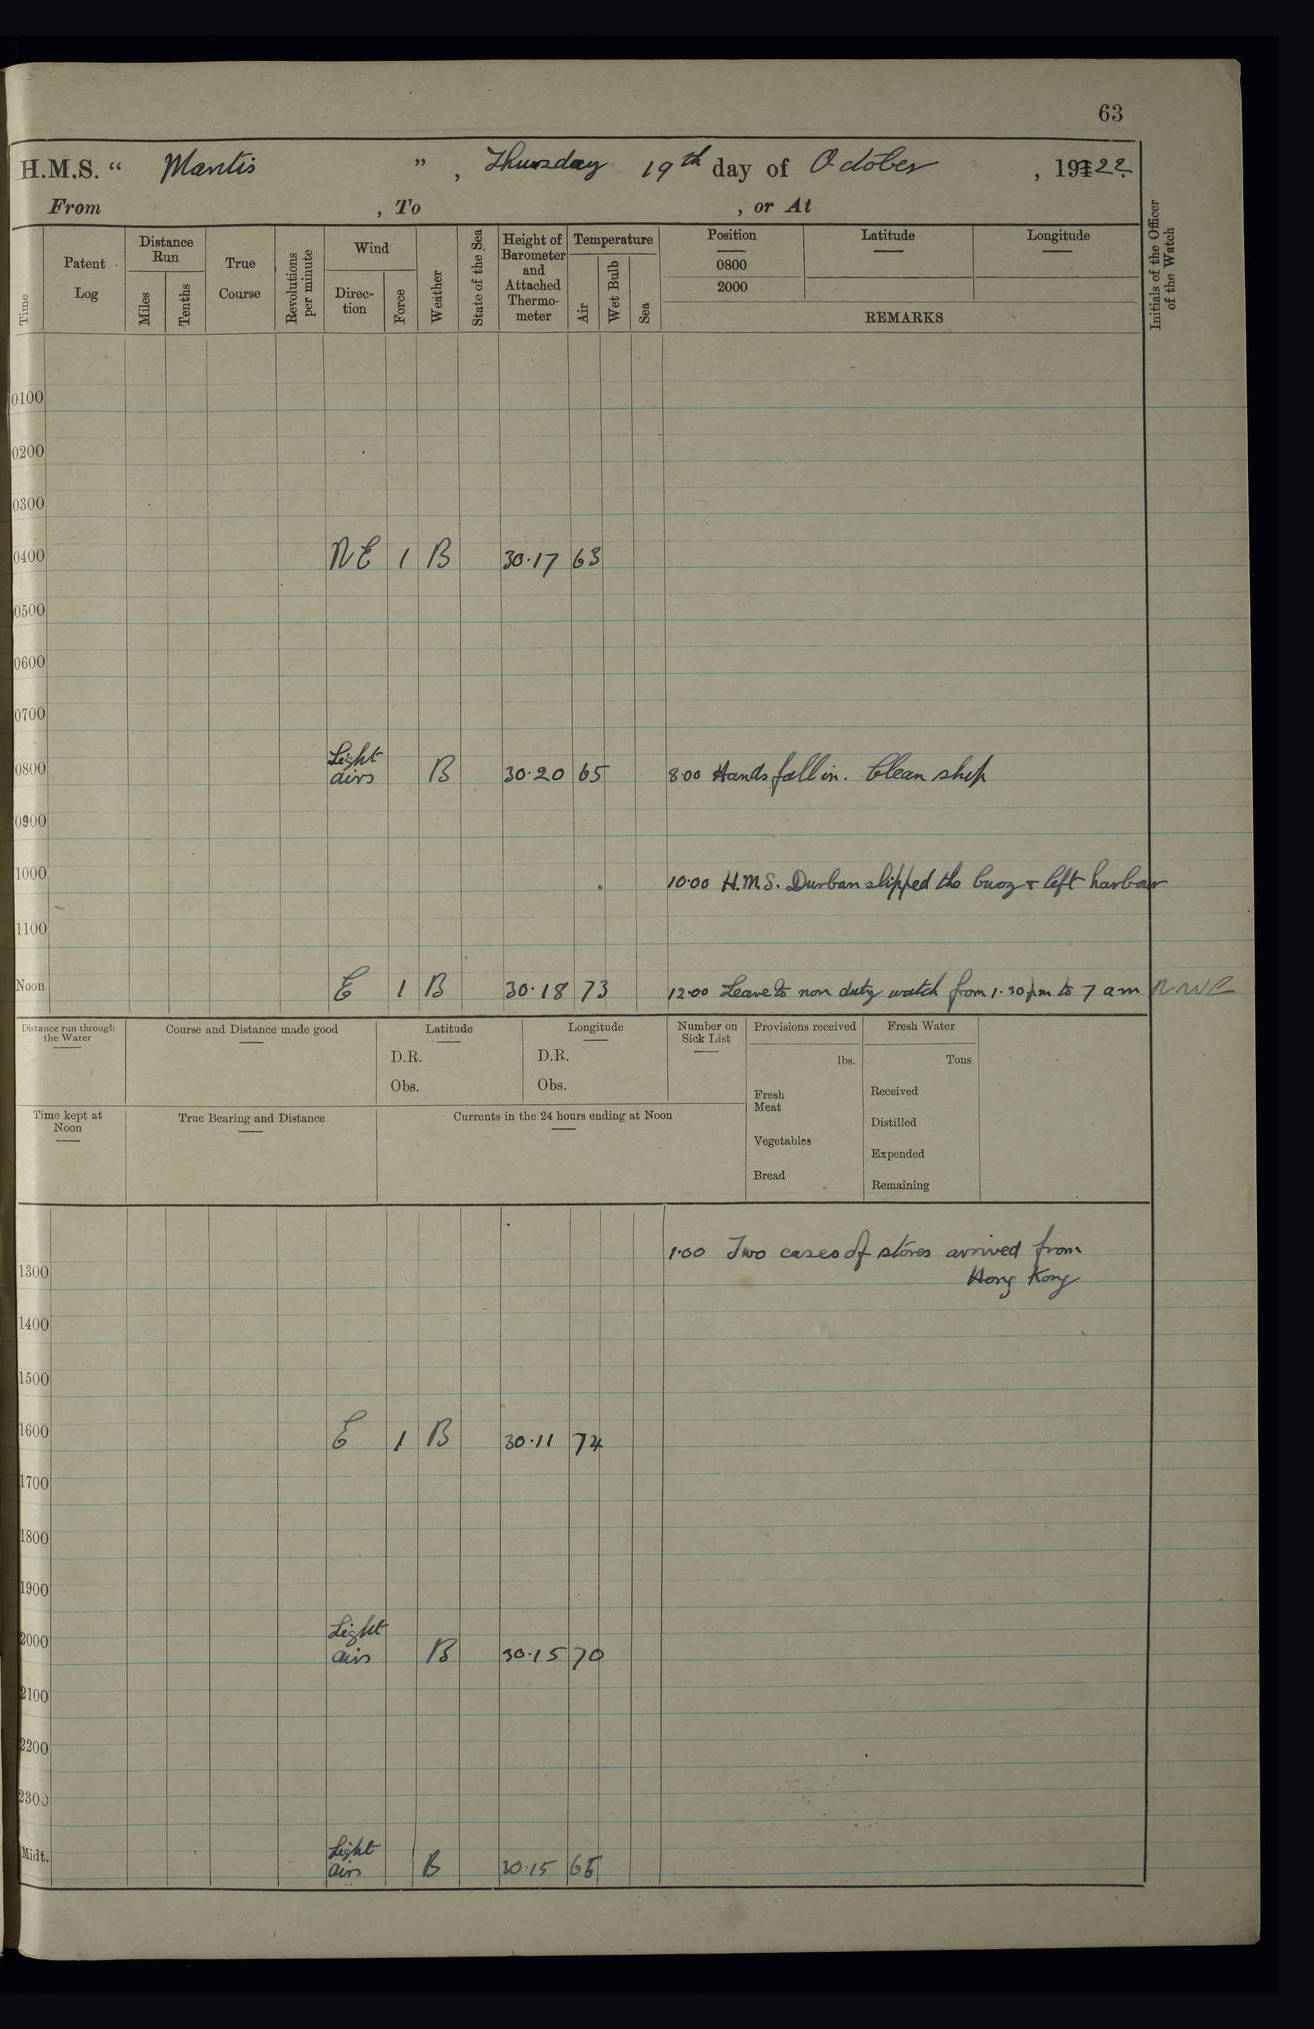 63
H.M.S. “ Mantis ” , Thursday 19th day of October , 1922.
From , To , or At
Time
Patent Log
Distance Run
Miles
Tenths
True Course
Revolutions per minute
Wind
Direc-tion
Force
Weather
State of the Sea
Height of Barometer and Attached Thermo-meter
Temperature
Air
Wet Bulb
Sea
Position
0800
2000
Latitude
Longitude
REMARKS
Initials of the Officer of the Watch
0100
0200
0300
0400 NE 1 B 30·17 63
0500
0600
0700
0800 Light airs B 30·20 65 8·00 Hands fall in. Clean ship
0900
1000 10·00 H.M.S. Durban slipped the buoy & left harbour
1100
Noon E 1 B 30·18 73 12·00 Leave to non duty watch from 1·30 pm to 7 am
Distance run through the Water
Course and Distance made good
Latitude
D.R.
Obs.
Longitude
D.R.
Obs.
Number on Sick List
Provisions received
lbs.
Fresh Meat
Vegetables
Bread
Fresh Water
Tons
Received
Distilled
Expended
Remaining
Time kept at Noon
True Bearing and Distance
Currents in the 24 hours ending at Noon
1·00 Two cases of stores arrived from
1300 Hong Kong
1400
1500
1600 E 1 B 30·11 74
1700
1800
1900
2000 Light airs B 30·15 70
2100
2200
2300
Midt. Light airs B 30·15